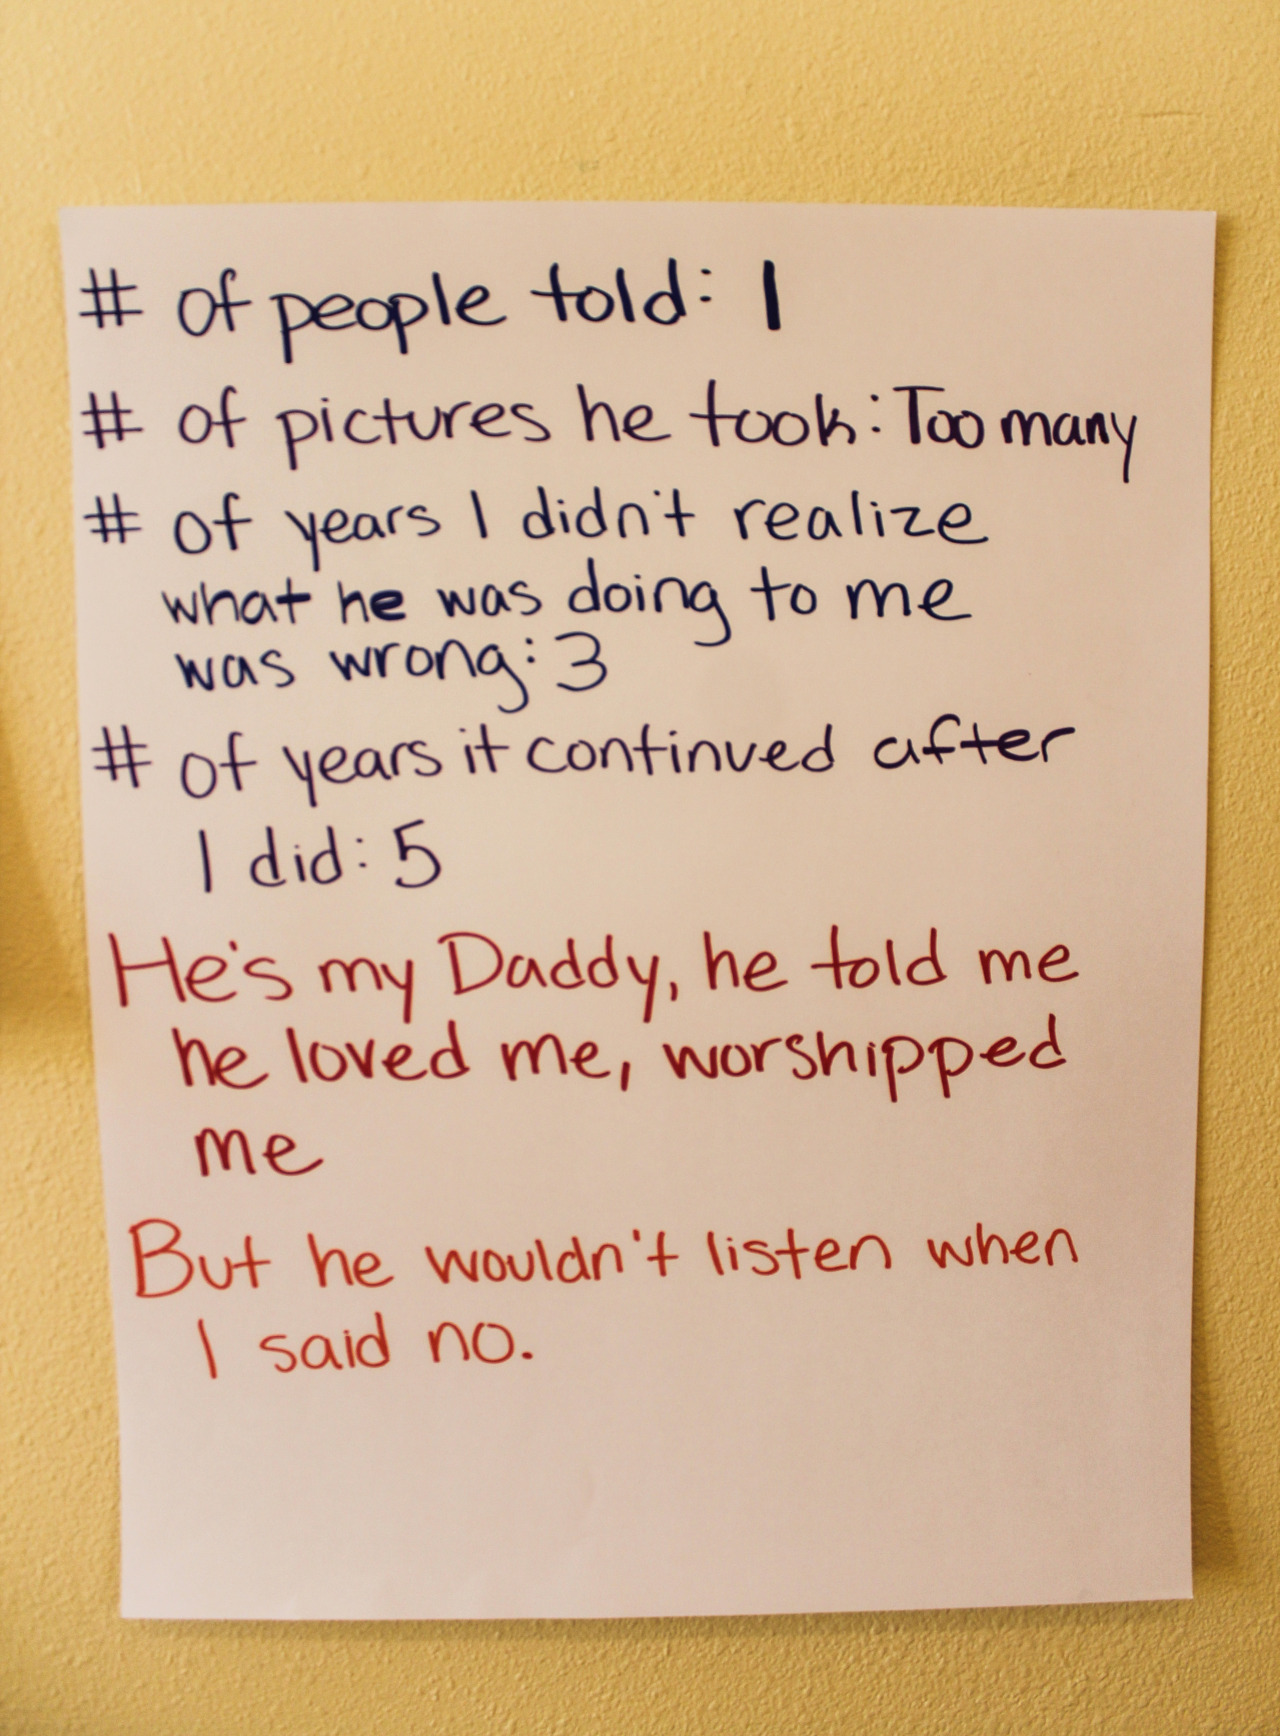 # of people told: 1
# of pictures he took: Too many
# of years I didn't realize
what he was doing to me
was wrong: 3
# of years it continued after
I did: 5
He's my Daddy, he told me
he loved me, worshipped
me
But he wouldn't listen when
I said no.